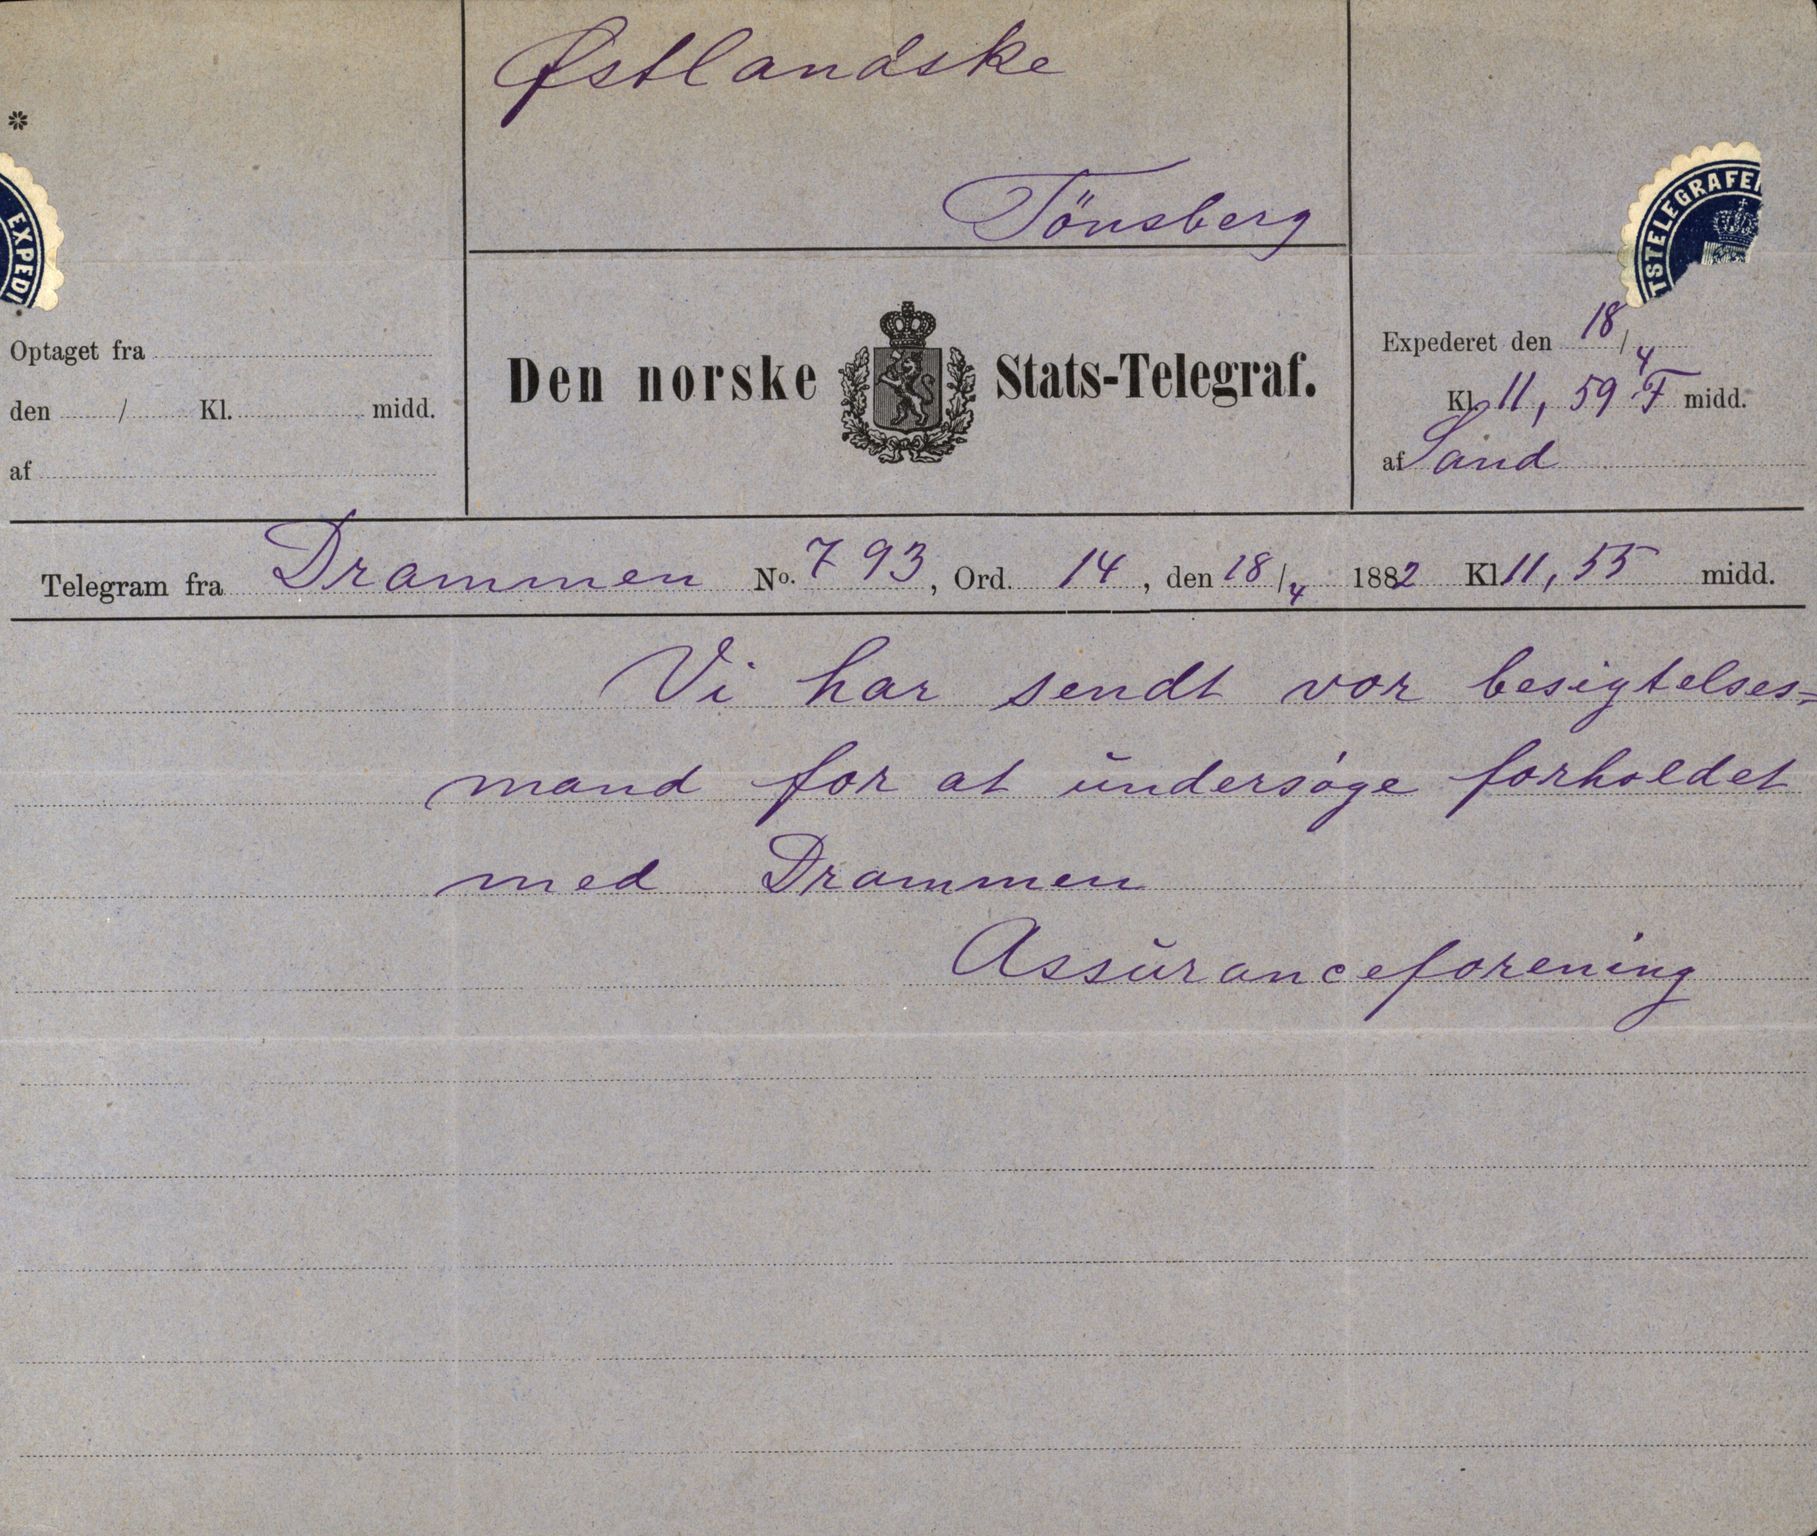 Østlandske
Tönsberg
*
EXPEDI
TSTELEGRAFE
Optaget fra
den / Kl. midd.
af
Den norske Stats-Telegraf.
Expederet den 18/4
Kl 11, 59 F midd.
af Sand
Telegram fra Drammen No. 793, Ord. 14, den 18/4 1882 Kl 11, 55 midd.
Vi har sendt vor besigtelses=
mand for at ŭndersøge forholdet
med Drammen
Assŭranceforening